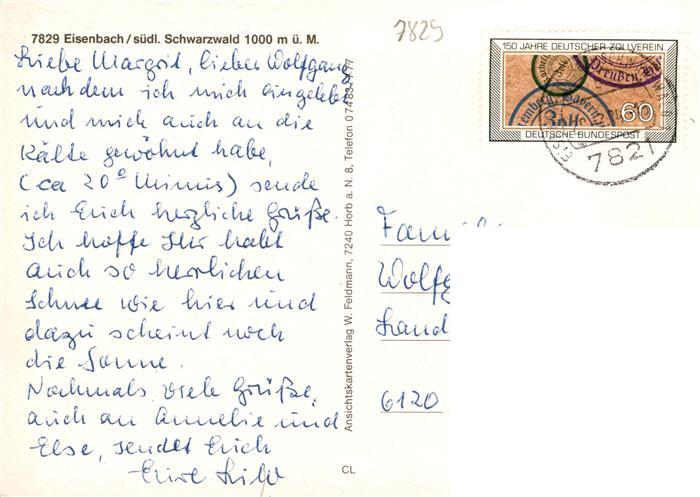 7829 Eisenbach/südl. Schwarzwald 1000 m ü. M.
Liebe Margrit, lieber Wolfgang,
nachdem ich mich eingelebt
und mich auch an die
Kälte gewöhnt habe,
(ca 20° Minus) sende
ich Euch herzliche Grüße.
Ich hoffe Ihr habt
auch so herrlichen
Schnee wie hier und
dazu scheint noch
die Sonne.
Nochmals viele Grüße,
auch an Annelie und
Else, sendet Euch
Eure
Ansichtskartenverlag W. Feldmann, 7240 Horb a. N. 8, Telefon 0 74 83
CL
7829
150 JAHRE DEUTSCHER ZOLLVEREIN
Preußen
Zoll
60
DEUTSCHE BUNDESPOST
7821
Fami
Wolfg
Land
6120